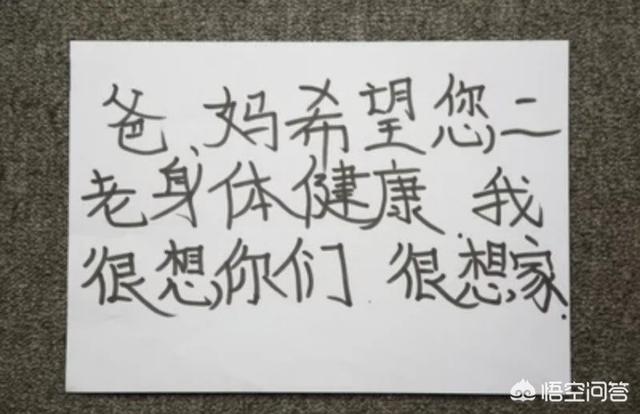 爸、妈希望您二
老身体健康.我
很想你们 很想家.
悟空问答